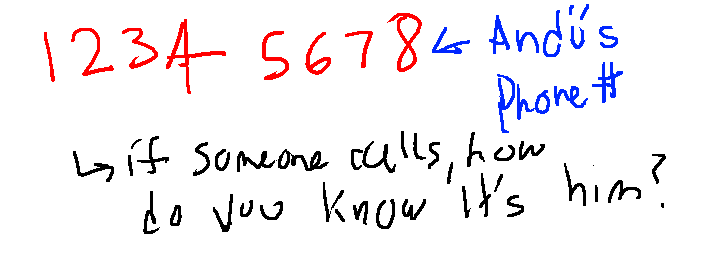 1234 5678 ← Andi's
Phone #
↳ if someone calls, how
do you know it's him?